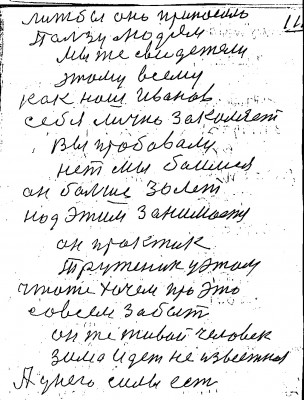 литбы оно приносило
Ползу людям
мы же свидетели
этому всему
как наш Иванов
себя лично закаляет
Вы пробовали
нет мы боимся
он больше 30 лет
над этим занимается
он практик
труженик у этом
что ты хочем про это
совсем забыт
он же живой человек
зима идет не известная
А у него силы ест